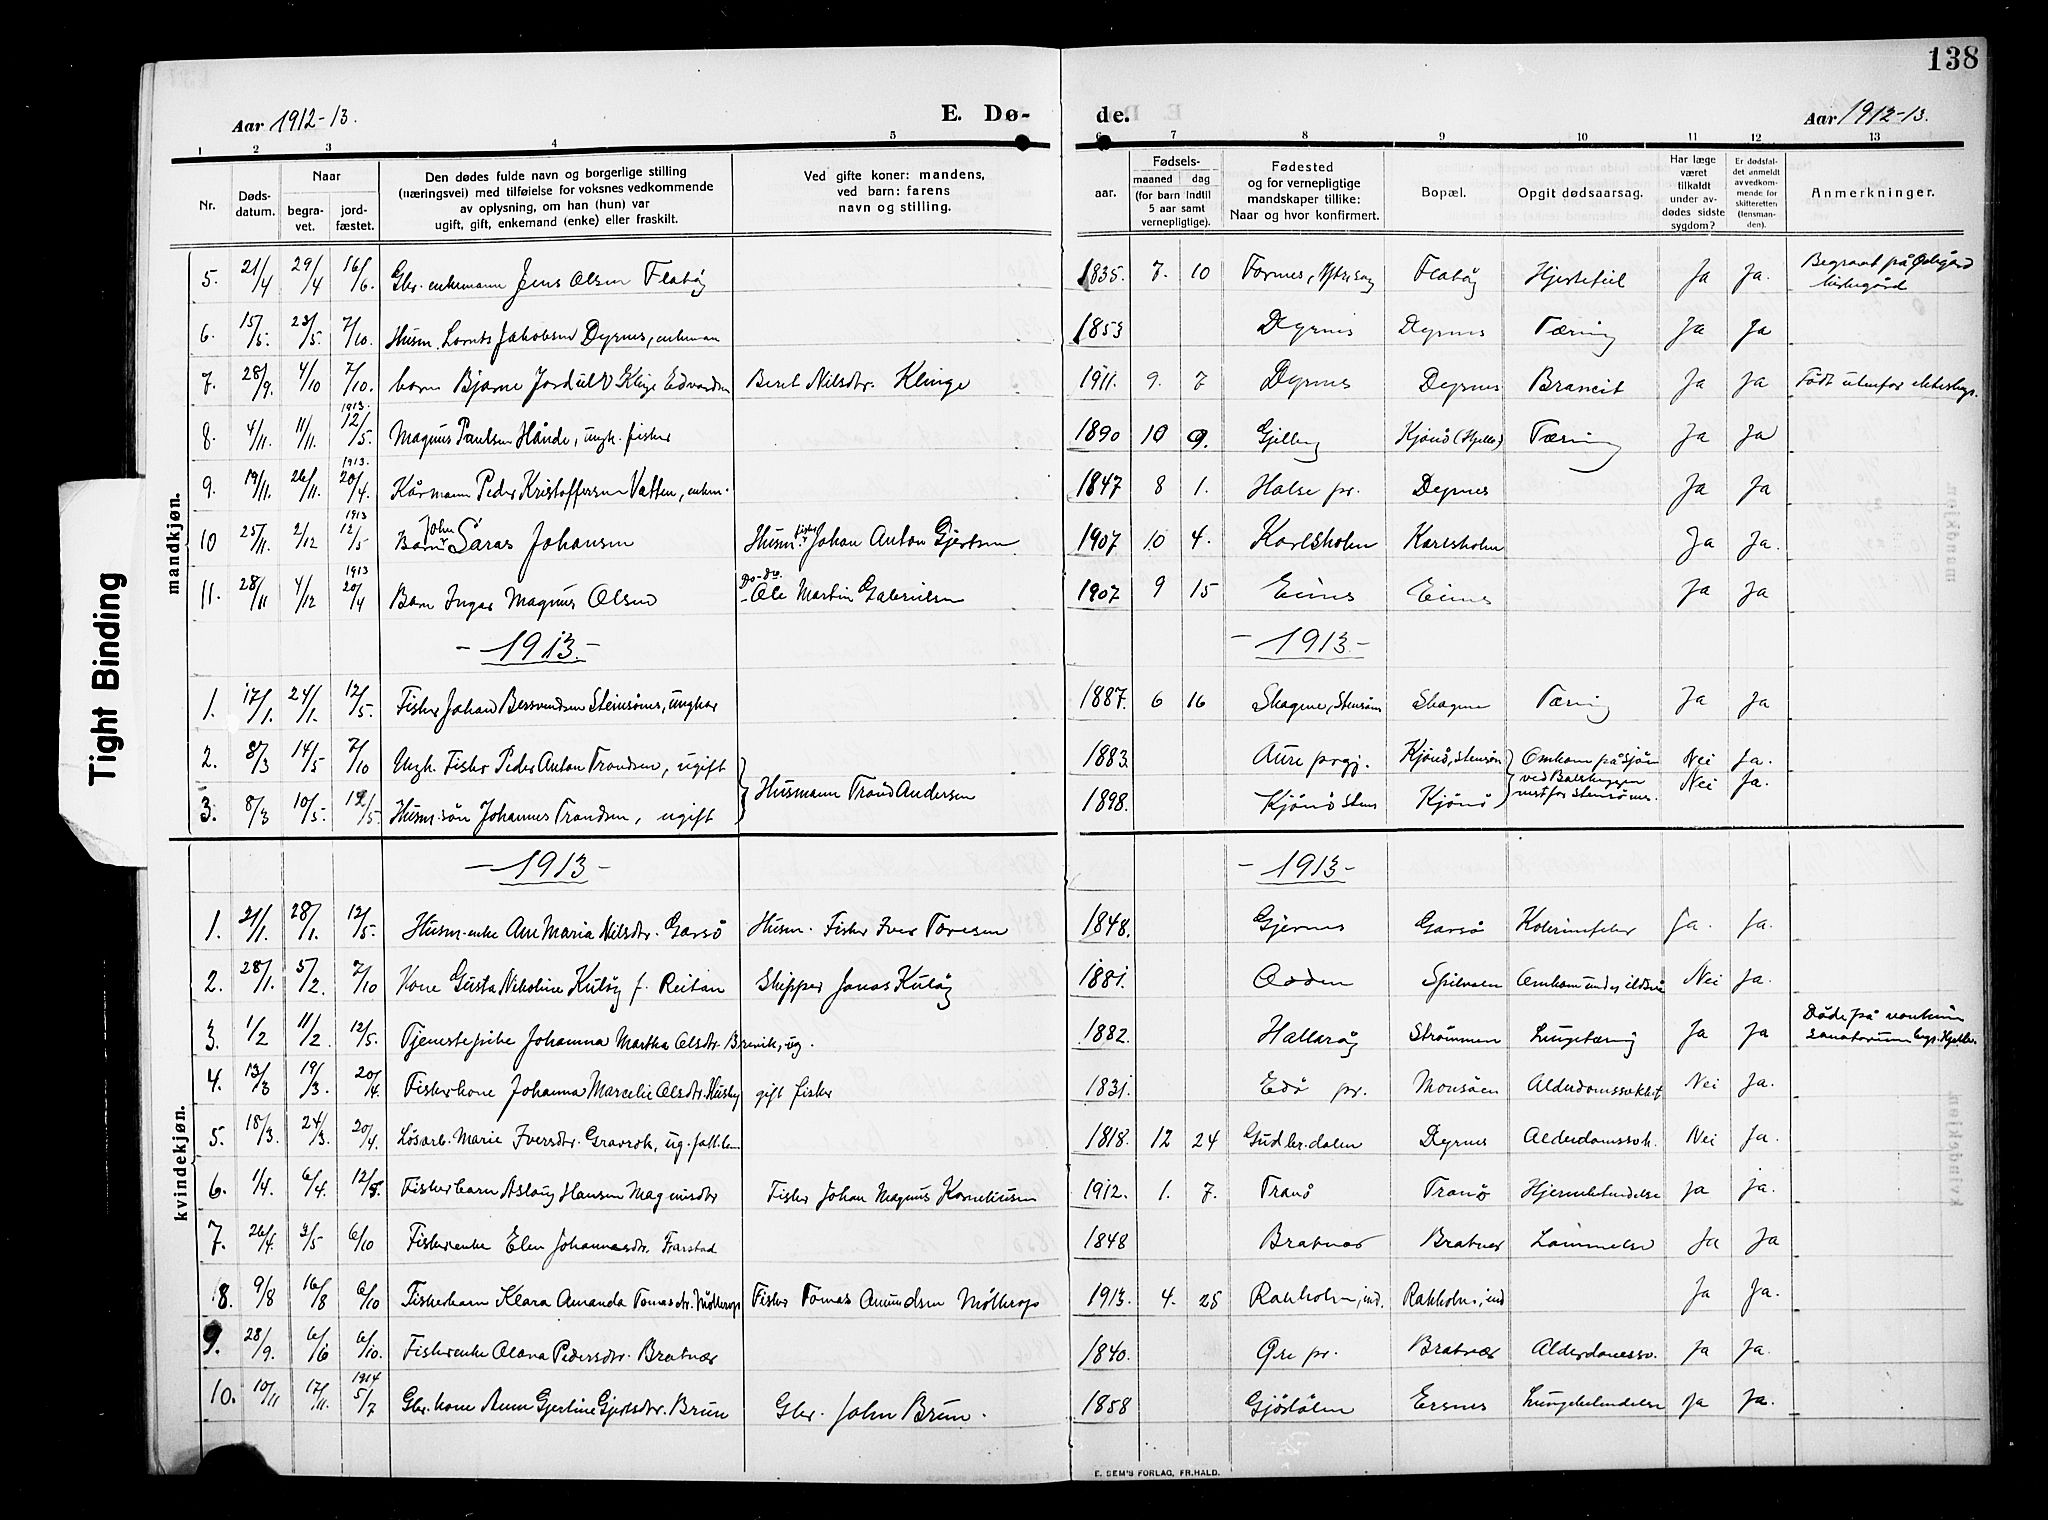 138
Aar 1912-13.
E. Dø-
de.
Aar 1912-13.
1 2 3 4 5 6 7 8 9 10 11 12 13
Nr.
Døds-
datum.
Naar
begra-
vet.
jord-
fæstet.
Den dødes fulde navn og borgerlige stilling
(næringsvei) med tilføielse for voksnes vedkommende
av oplysning, om han (hun) var
ugift, gift, enkemand (enke) eller fraskilt.
Ved gifte koner: mandens,
ved børn: farens
navn og stilling.
aar.
Fødsels-
maaned dag
(for barn indtil
5 aar samt
vernepligtige).
Fødested
og for vernepligtige
mandskaper tillike:
Naar og hvor konfirmert.
Bopæl.
Opgit dødsaarsag.
Har læge
været
tilkaldt
under av-
dødes sidste
sygdom?
Er dødsfal-
det anmeldt
av vedkom-
mende for
skifteretten
(lensman-
den).
Anmerkninger.
mandkjøn.
5. 21/4 29/4 16/6. Gbr. enkemann Jens Olsen Flatøy 1835. 7. 10 Fornes, Flatøy Hjertefeil Ja Ja. Begravet på Ødegård
kirkegård
6. 15/5. 23/5. 7/10. Husm. Lornts Jakobsen Dyrnes, enkeman 1853 Dyrnes Dyrnes Tæring Ja Ja
7. 28/9. 4/10 7/10. barn Bjarne Jordulv Klinge Edvardsen Beret Nilsdtr. Klinge 1911. 9. 7 Dyrnes Dyrnes Brancit Ja Ja Født utenfor ekteskap.
8. 4/11. 11/11. 1913. 12/5. Magnus Paulsen Hånde, ungk. fisker 1890 10 9. Kjønø Tæring Ja Ja
9. 19/11. 26/11. 1913. 20/4. Kårmann Peder Kristoffersen Vatten, enkem. 1847 8 1. Halse pr. Dyrnes Ja Ja
10 25/11. 2/12 1913 12/5 Barn John Saras Johansen Husm. fisker Johan Anton Gjertsen 1907 10 4. Karlsholm Karlsholm Ja Ja.
11. 28/11 4/12 1913 20/4 Barn Ingar Magnus Olsen Do-do. - Ole Martin Gabrielsen 1907 9 15 Eines Eines Ja Ja
- 1913. - - 1913. -
1. 17/1. 24/1. 12/5. Fisker Johan Bersvendsen Steinsønes, ungkar 1887. 6 16 Skagene, Stensønes Skagene Tæring Ja Ja
2. 8/3 14/5 7/10 Ungk. Fisker Peder Anton Trondsen, ugift 1883. Aure prgj. Kjønø, stensøn Omkom på sjøen Nei Ja.
Husmann Trond Andersen ved
3. 8/3 10/5. 12/5. Husm. søn Johannes Trondsen, ugift 1898. Kjønø Stens Kjønø vestfor stensønes. Nei Ja.
kvindekjøn.
- 1913 - - 1913 -
1. 21/1. 28/1. 12/5. Husm. enke Ane Maria Nilsdtr. Garsø Husm. Fisker Iver Toresen 1848. Gjernes Garsø Kolerinfeber Ja. Ja.
2. 28/1. 5/2. 7/10 Kone Gusta Nikoline Kuløy f. Reitan Skipper Jonas Kuløy 1881. Odden Omkom under ildsvå Nei Ja.
3. 1/2 11/2. 12/5. Tjenestepike Johanna Martha Olsdtr. Brevik, ug. 1882. Hallarøy Strømmen Lungetæring Ja Ja Døde på
sanatorium
4. 13/3 19/3. 20/4. Fiskerkone Johanna Marcelie Olsdtr. Husby gift fisker 1831. Edø pr. Monsøen Alderdomssvakhet Nei Ja.
5. 18/3. 24/3. 20/4. Løsarb. Marie Iversdtr. Gravrok, ug. fatt.lem 1818. 12 24 Gudbr.dalen Dyrnes Alderdomssvk. Nei Ja.
6. 1/4. 6/4. 12/5. Fiskerbarn Aslaug Hansen Magnusdtr Fisker Johan Magnus Kornelinsen 1912. 1. 7. Tranø Tranø Hjernebetendelse ja ja.
7. 26/4. 3/5 6/10 Fiskerenke Elen Johannesdtr. Frarstad 1848 Bratvær Bratvær Lammelse Ja Ja
8. 9/8 16/8 6/10 Fiskerbarn Klara Amanda Tomasdtr. Møllerop Fisker Tomas Amundsen Møllerop 1913. 4. 25 Rakholm, ind. Rakholm, ind Ja Ja.
9. 28/9. 6/16 6/10. Fiskerenke Olava Pedersdtr. Bratvær 1840. Øre pr. Bratvær Alderdomssv. Ja Ja.
10. 10/11 17/11. 1914 5/7 Gbr. kone Anne Gjertine Gjertsdtr. Brun Gbr. John Brun. 1858 Gjøstølen Ersnes Lungebetendelse Ja Ja.
E. SEM'S FORLAG, FR.HALD.
Tight Binding